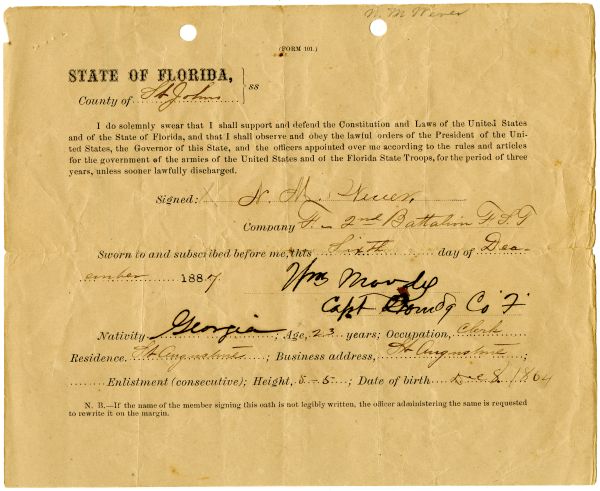 N. M. Wever
(FORM 101.)
STATE OF FLORIDA, } ss
County of St Johns
I do solemnly swear that I shall support and defend the Constitution and Laws of the United States
and of the State of Florida, and that I shall observe and obey the lawful orders of the President of the Uni-
ted States, the Governor of this State, and the officers appointed over me according to the rules and articles
for the government of the armies of the United States and of the Florida State Troops, for the period of three
years, unless sooner lawfully discharged.
Signed: N. M. Wever.
Company F. 2nd Battalion F. S. T
Sworn to and subscribed before me, this Sixth day of Dec-
ember 1887
Wm Moody
Capt Comdg Co "F"
Nativity Georgia; Age, 23 years; Occupation, Clerk
Residence. St Augustine; Business address, St Augustine;
Enlistment (consecutive); Height, 5-5; Date of birth Dec 8 1864
N. B.—If the name of the member signing this oath is not legibly written, the officer administering the same is requested
to rewrite it on the margin.